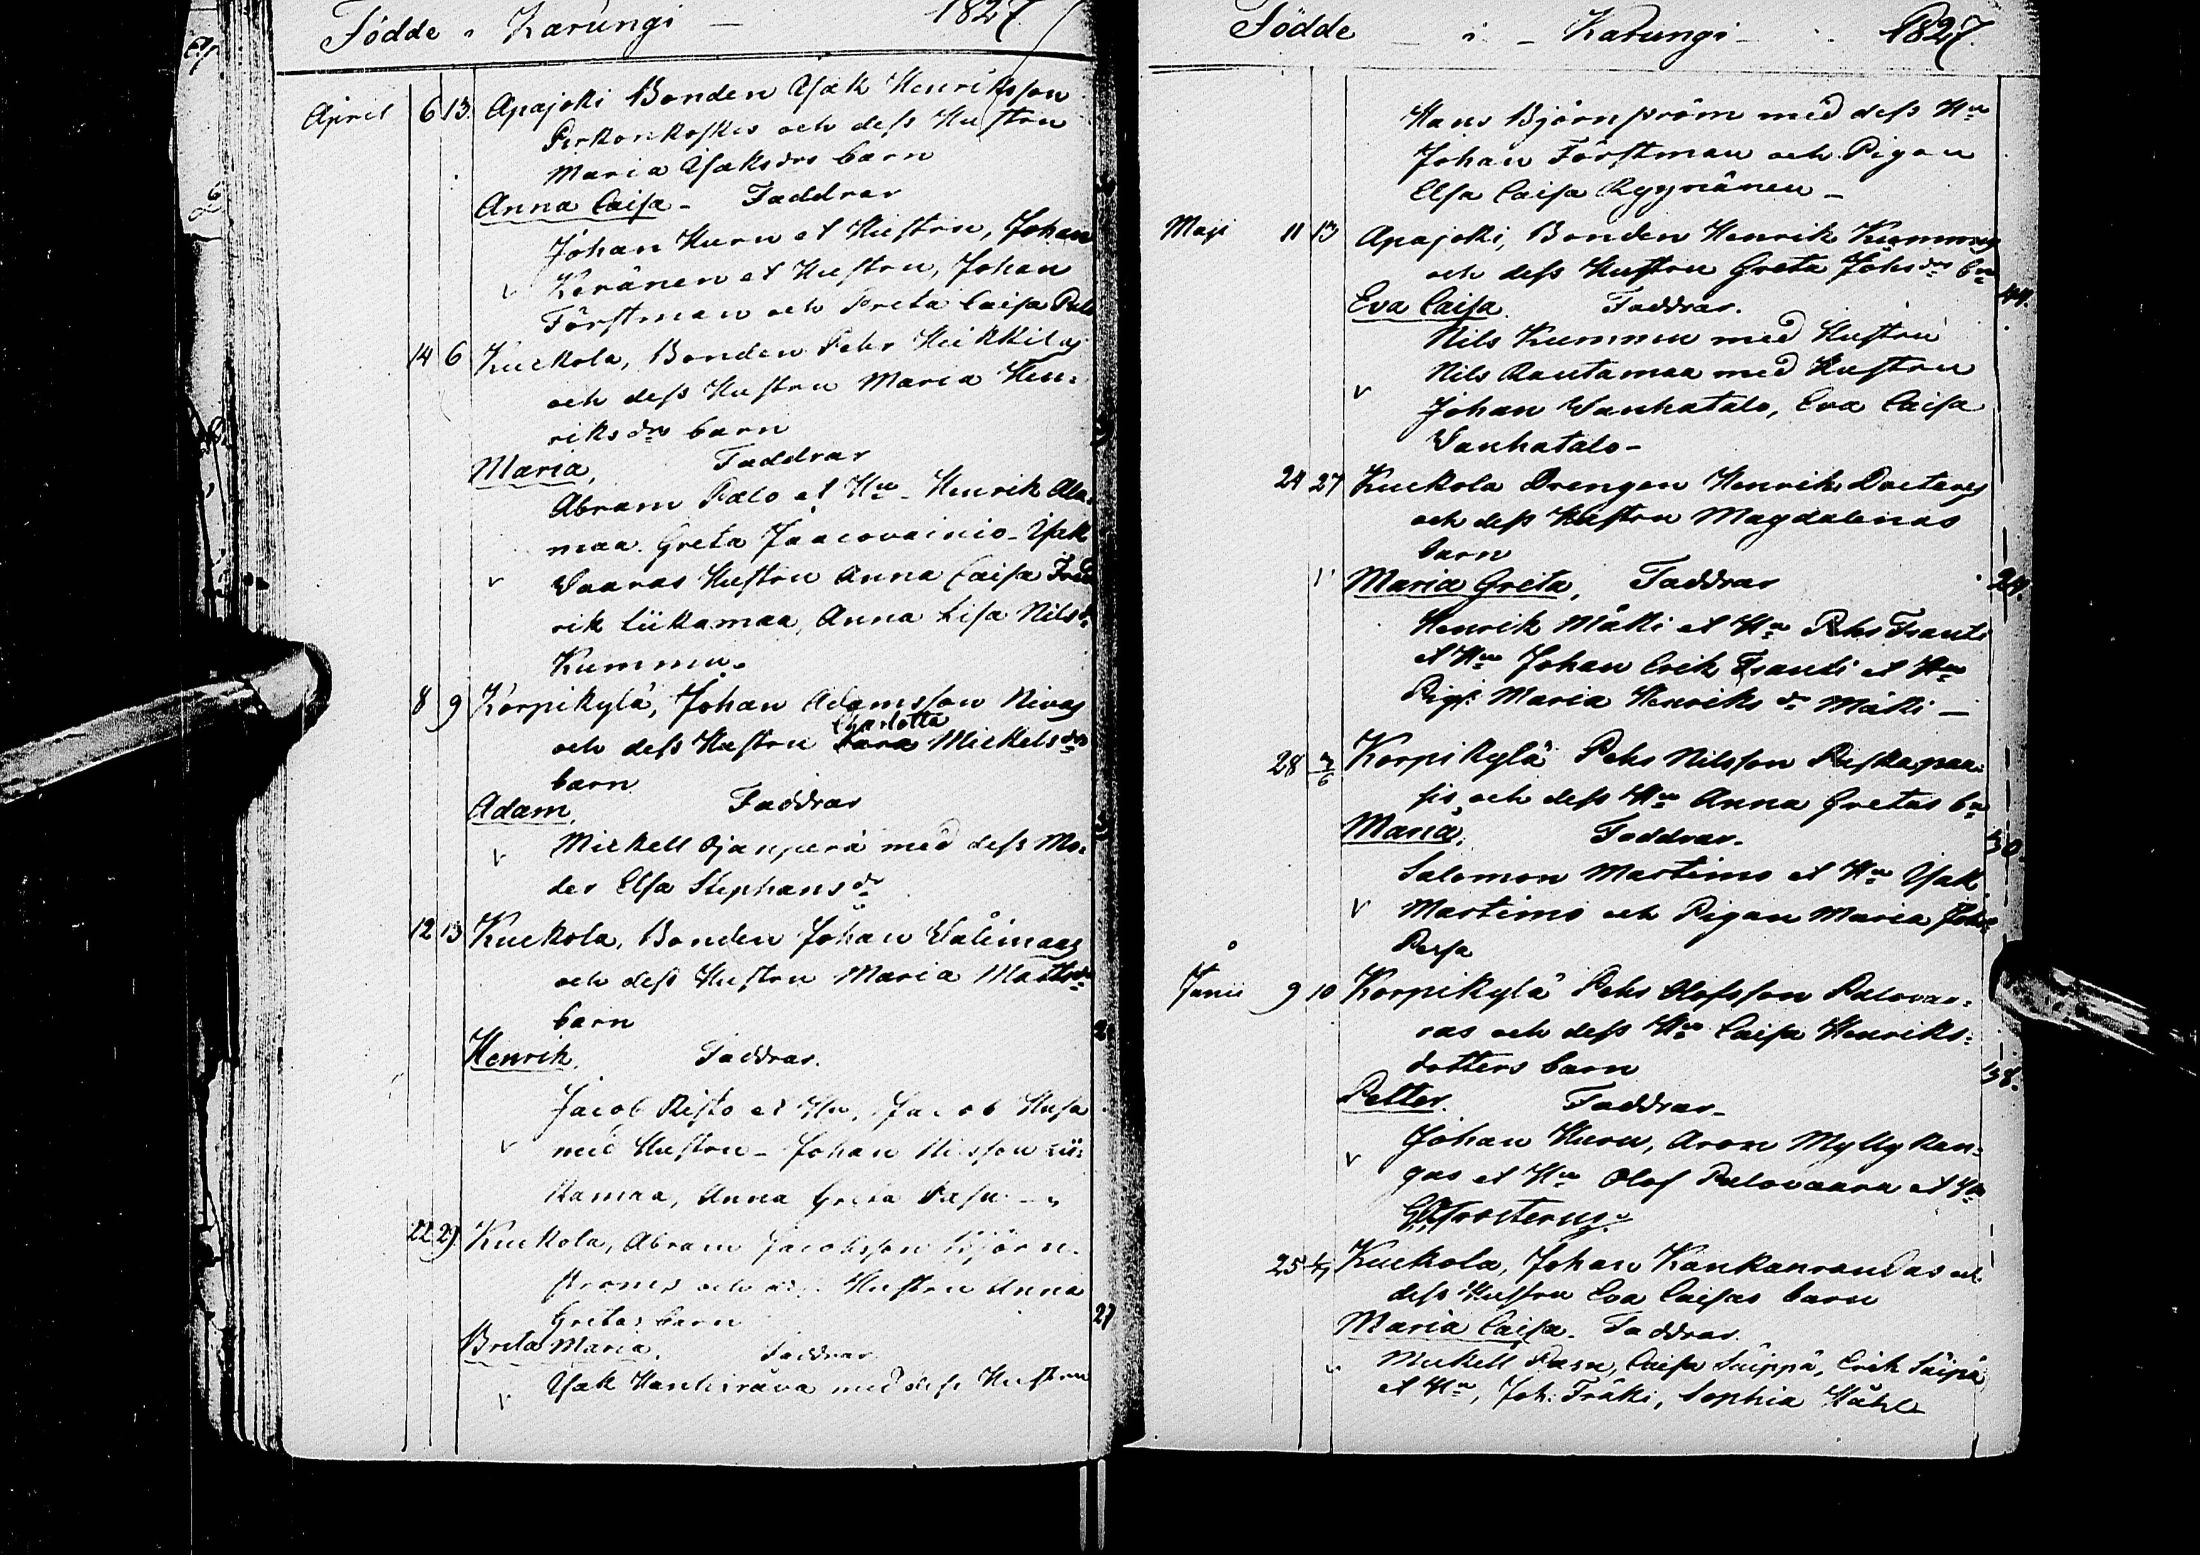 Födde i Karungi 1827
April 6 13. Apajoki Bonden Isak Henriksson
Pirkonkoskis och dess Hustru
Maria Isaksdrs barn
Anna Caisa - Faddrar
Johan Huru et Hustru, Johan
v Keränen et Hustru, Johan
Förstman och Greta Caisa Palo
14 6 Kuckola, Bonden Pehr Heikkilas
och dess Hustru Maria Hen:
riksdrs barn
Maria, Faddrar
Abram Palo et Hu - Henrik Ala:
maa. Greta Jaacovainio - Isak
v Vaaras Hustru Anna Caisa Fred
rik Liikamaa, Anna Lisa Nilsdr
Kummu.
8 9 Korpikylä, Johan Adamsson Nivas
Charlotta
och dess Hustru Mickelsdrs
barn
Adam, Faddrar
v Mickell Ojanperä med dess Mo:
der Elsa Stephansdr
12 13 Kuckola, Bonden Johan Välimaas
och dess Hustru Maria Mattsdrs
barn
Henrik. Faddrar.
Jacob Risto et Hu, Jacob Husa
v med Hustru - Johan Nilsson Lii:
kamaa, Anna Greta Pasu
22 29 Kuckola, Abram Jacobsson Björn:
ströms och dess Hustru Anna
Gretas barn 27
Brita Maria. Faddrar
v Isak Hankiräva med dess Hustru
Födde i Karungi 1827.
Hans Björnström med dess Hu
Johan Förstman och Pigan
Elsa Caisa Ryynänen -
Maji 11 13 Apajoki, Bonden Henrik Kummus
och dess Hustru Greta Johsdrs bn
Eva Caisa. Faddrar. 44.
Nils Kummu med Hustru
Nils Rautamaa med Hustru
v Johan Vanhatalo, Eva Caisa
Vanhatalo -
24 27 Kuckola Drengen Henrik
och dess Hustru Magdalenas
barn
v Maria Greta, Faddrar 24.
Henrik Mäki et Hu Pehr Frauti
et Hu Johan Erik et Hu
Pig. Maria Henriksdr Mäki -
28 3/6 Korpikylä Pehr Nilsson Ruskapaa:
sis, och dess Hu Anna Gretas bn
Maria, Faddrar. 30.
Salomon Martimo et Hu Isak
v Martimo och Pigan Maria Johsdr
Persa
Junii 9 10 Korpikylä Pehr Olofsson Palovaa:
ras och dess Hu Caisa Henriks:
dotters barn 38.
Petter. Faddrar -
Johan Huru, Aron Myllykan:
v gas et Hu Olof Palovaara et Hu
25 1/7 Kuckola, Johan Kankanrandas och
dess Hustru Eva Caisas barn
Maria Caisa. Faddrar.
v Mickell Pasu, Caisa Säippä, Erik Säipä
et Hu, Joh: Fräki, Sophia Håhl